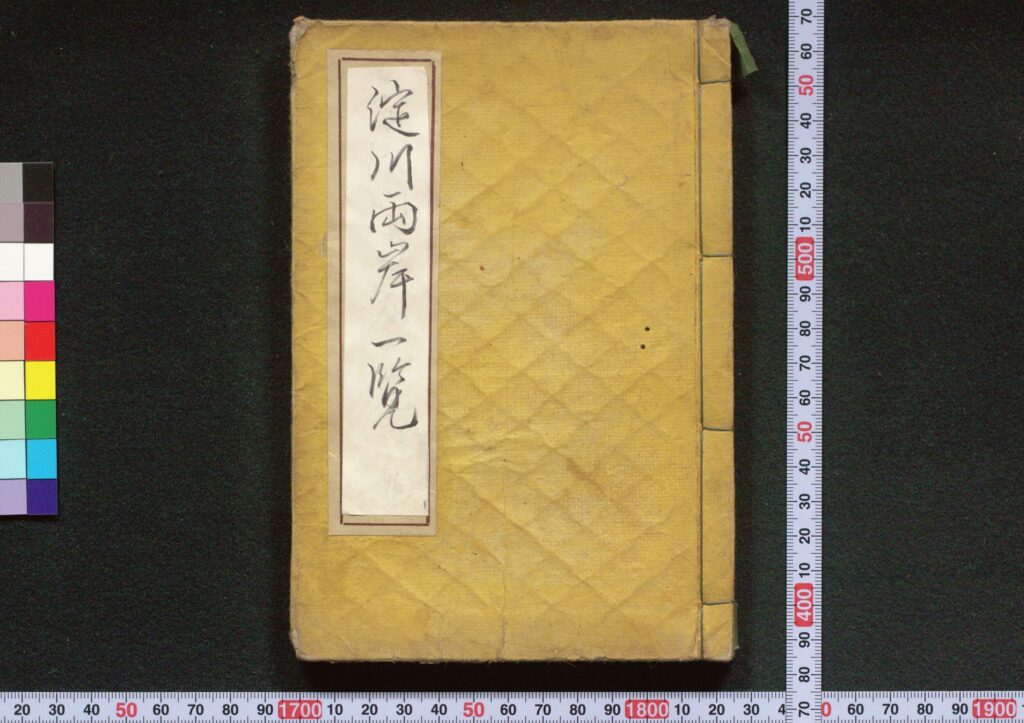 淀川両岸一覧
70
60
50
40
30
20
10
500
90
80
70
60
50
40
30
20
10
400
90
80
70
20 30 40 50 60 70 80 90 1700 10 20 30 40 50 60 70 80 90 1800 10 20 30 4 0 50 60 70 80 90 1900 10